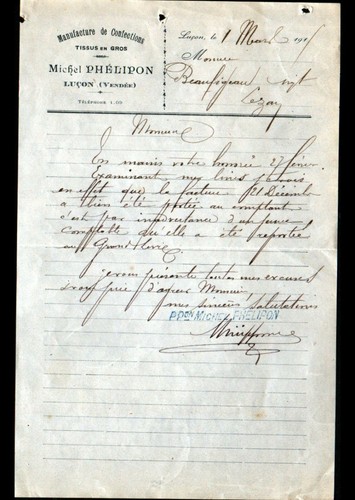 Manufacture de Confections
TISSUS EN GROS
MICHEL PHÉLIPON
LUÇON (VENDÉE)
TÉLÉPHONE 1.06
Luçon, le 1 Mars 191
Monsieur
Beaufigeau
Lezay
Monsieur
En mains votre honorée 27 février
Examinant mes livres je vois
en effet que la facture 21 Décembre
a bien été portée au comptant
c'est par inadvertance d'un jeune
comptable qu'elle a été reportée
au Grand livre.
Je vous présente toutes mes excuses
et vous prie d'agréer Monsieur
mes sincères salutations
PPON MICHEL PHÉLIPON